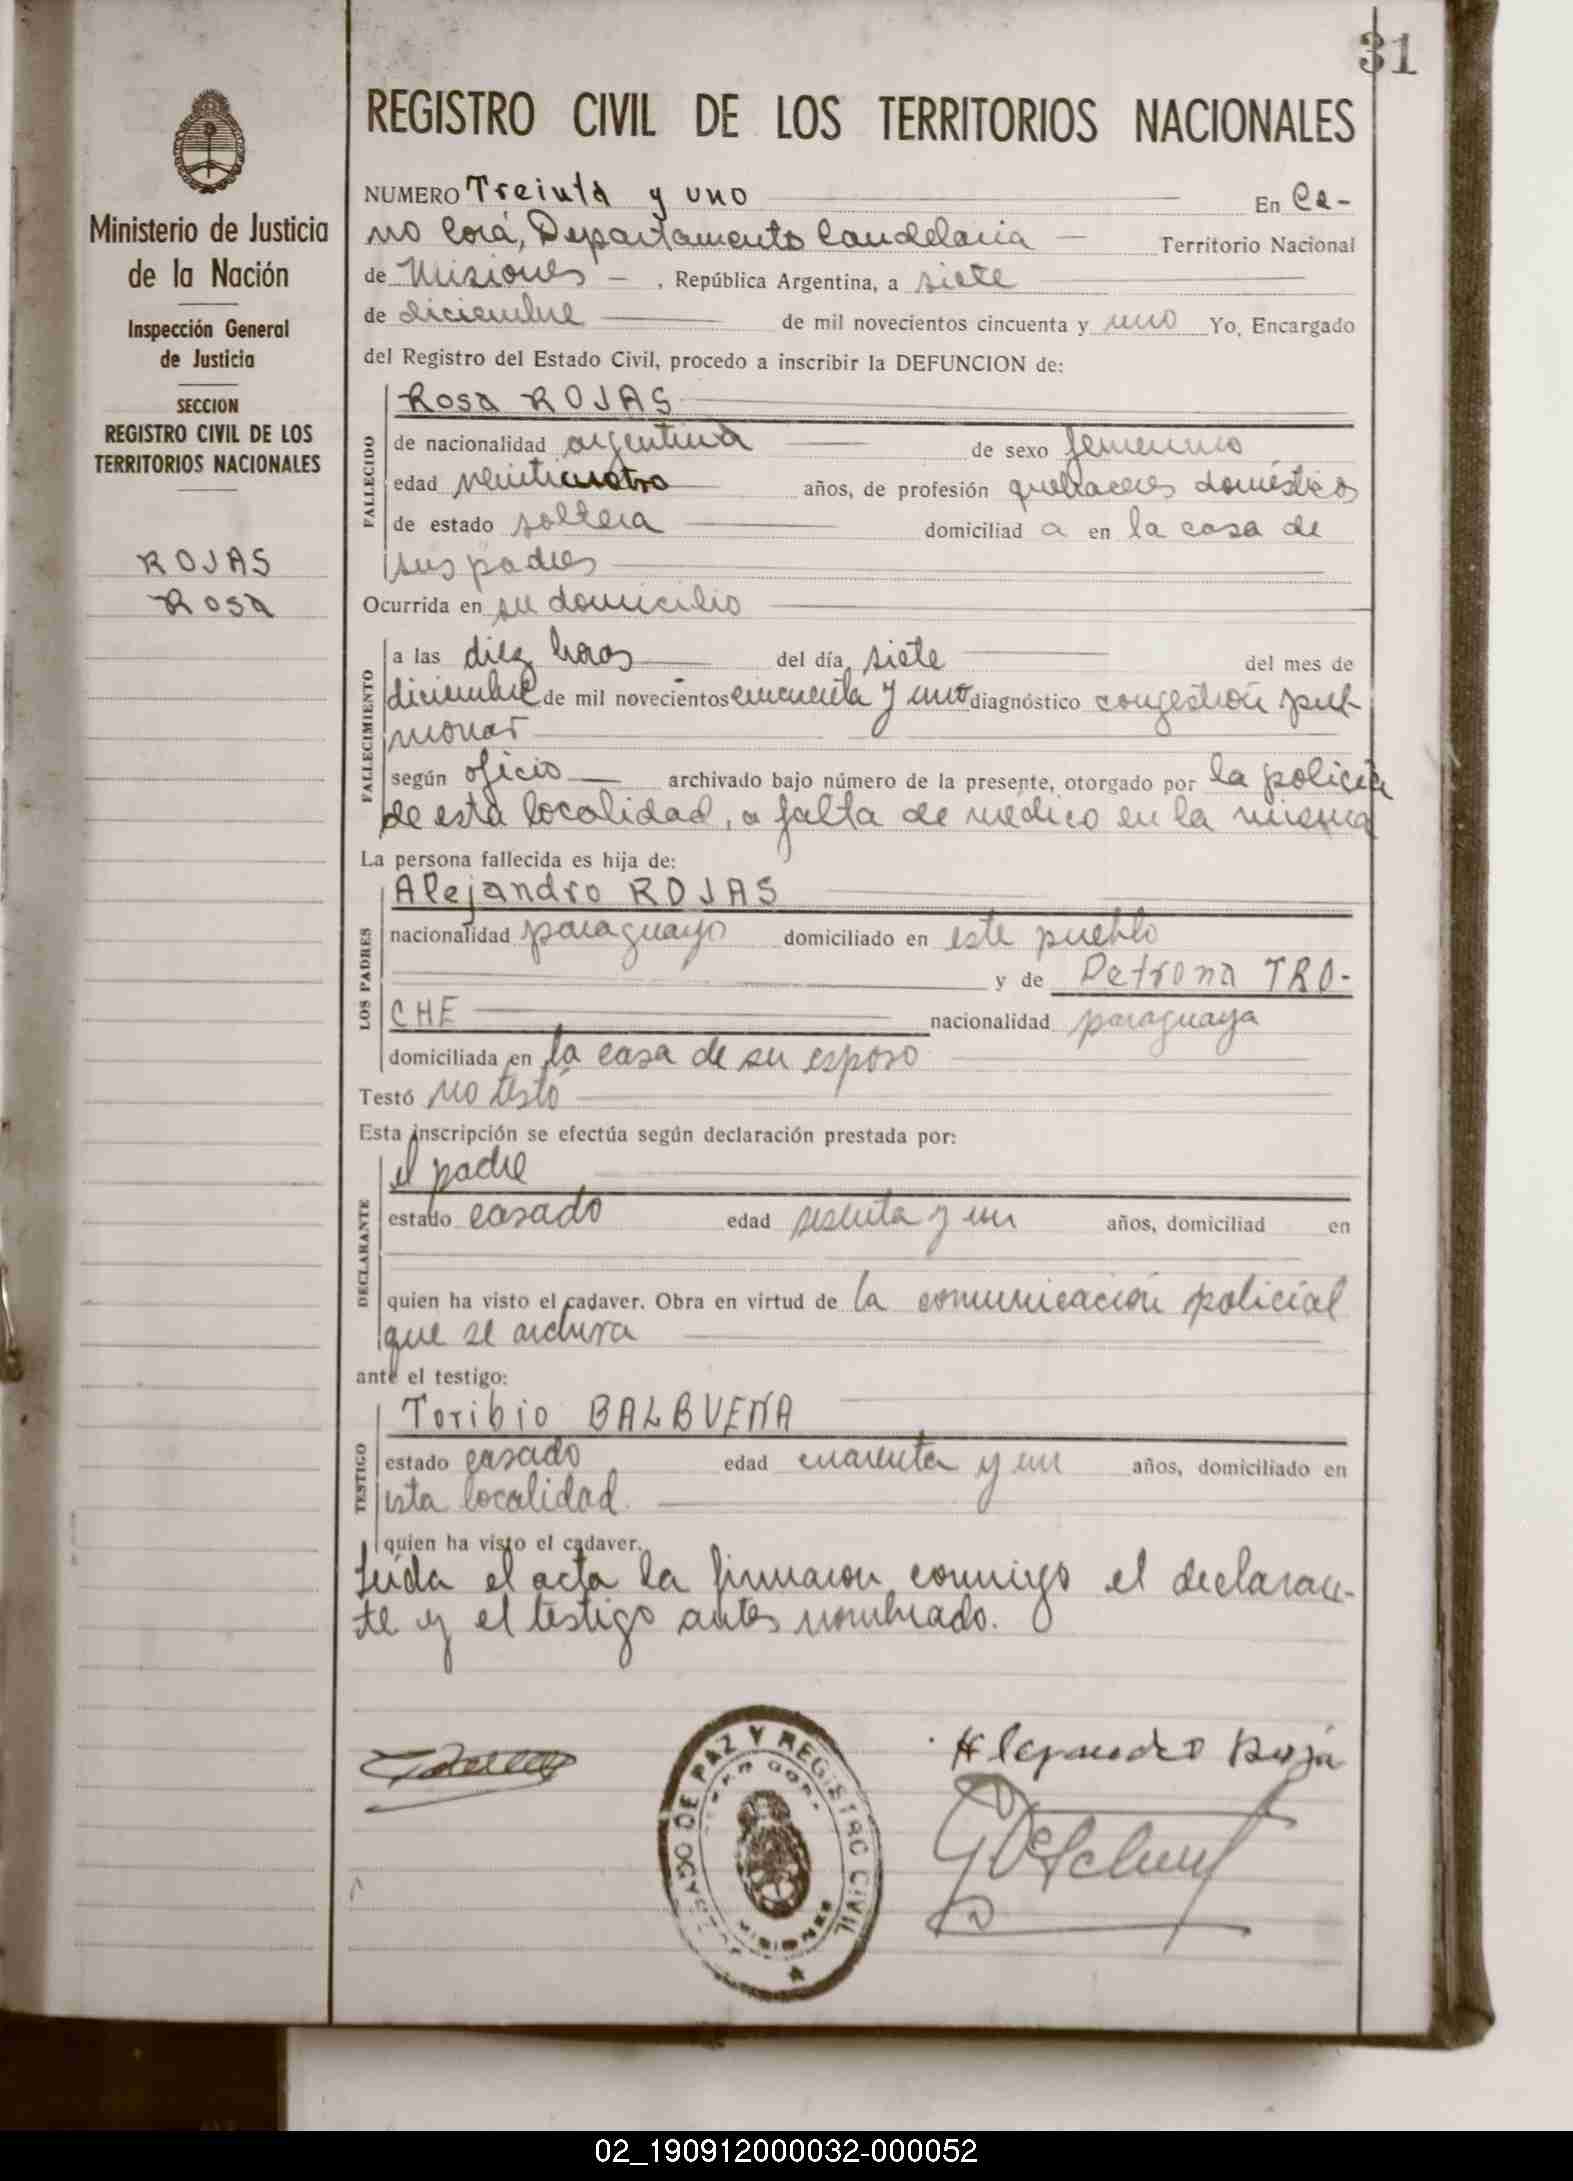 31
REGISTRO CIVIL DE LOS TERRITORIOS NACIONALES
Ministerio de Justicia
de la Nación
Inspección General
de Justicia
SECCION
REGISTRO CIVIL DE LOS
TERRITORIOS NACIONALES
ROJAS
Rosa
NUMERO Treinta y uno En Ce-
rro Corá, Departamento Candelaria Territorio Nacional
de Misiones, República Argentina, a siete
de diciembre de mil novecientos cincuenta y uno Yo, Encargado
del Registro del Estado Civil, procedo a inscribir la DEFUNCION de:
FALLECIDO
Rosa ROJAS
de nacionalidad argentina de sexo femenino
edad veinticuatro años, de profesión quehaceres domésticos
de estado soltera domiciliad a en la casa de
sus padres
Ocurrida en su domicilio
FALLECIMIENTO
a las diez horas del día siete del mes de
diciembre de mil novecientos cincuenta y uno diagnóstico congestión pul-
monar
según oficio archivado bajo número de la presente, otorgado por la policía
de esta localidad, a falta de médico en la misma
La persona fallecida es hija de:
LOS PADRES
Alejandro ROJAS
nacionalidad paraguayo domiciliado en este pueblo
y de Petrona TRO-
CHE nacionalidad paraguaya
domiciliada en la casa de su esposo
Testó no testó
Esta inscripción se efectúa según declaración prestada por:
DECLARANTE
el padre
estado casado edad sesenta y un años, domiciliad en
quien ha visto el cadaver. Obra en virtud de la comunicación policial
que se archiva
ante el testigo:
TESTIGO
Toribio BALBUENA
estado casado edad cuarenta y un años, domiciliado en
esta localidad.
quien ha visto el cadaver.
Leída el acta la firmaron conmigo el declaran-
te y el testigo antes nombrado.
Alejandro Roja
JUZGADO DE PAZ Y REGISTRO CIVIL
CERRO CORA
MISIONES
02_190912000032-000052